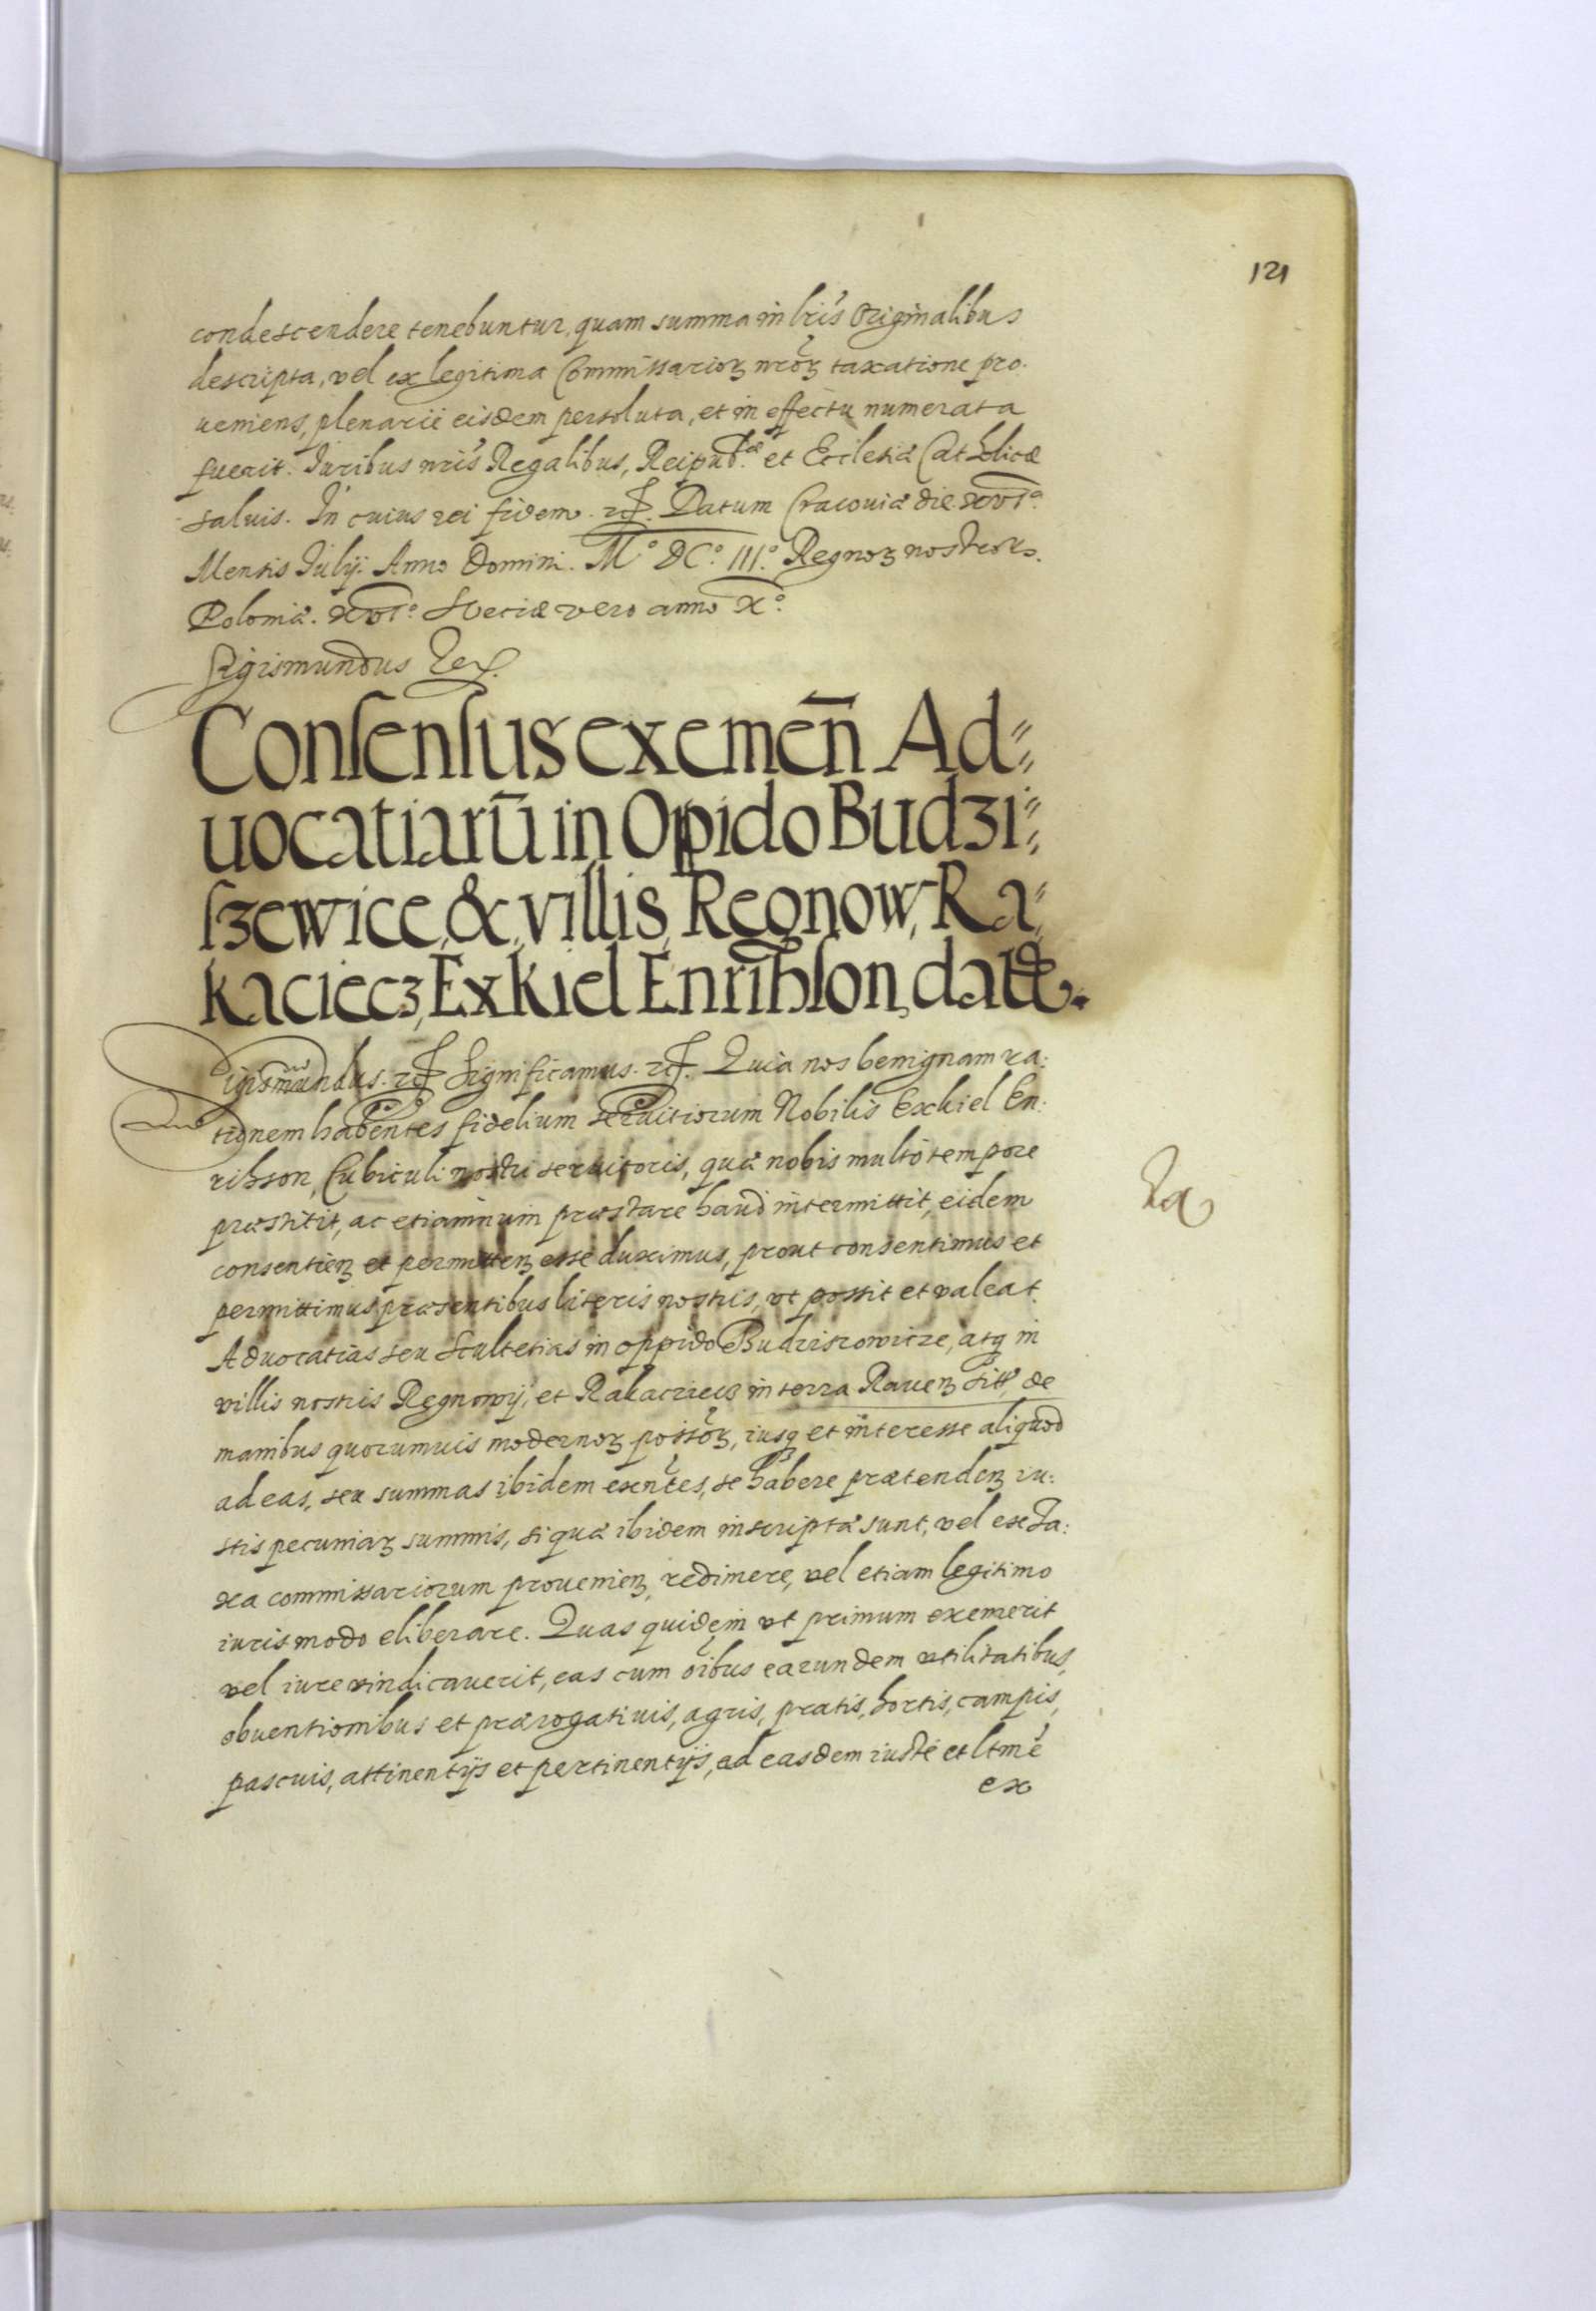 121
condescendere tenebuntur, quam summa in lris Originalibus
descripta, vel ex legitima Commissarioꝝ nroꝝ taxatione pro.
ueniens, plenarie eisdem persoluta, et in effectu numerata
fuerit. Iuribus nris Regalibus, Reipub.cae et Ecclesiæ Catholicæ
saluis. In cuius rei fidem. etc. Datum Cracouiæ die. XVI.o
Mensis Iulij. Anno Domini. M.o DC.o III.o Regnoꝝ nostroꝝ.
Poloniæ. XVI.o Sueciæ vero anno X.o
Sigismundus Rex.
Conſenſus exemen̄ Ad⸗
uocatiarū in Oppido Budzi⸗
ſzewice, & villis, Regnow, Ra⸗
kaciecz, Exkiel Enrihſon, datt.
Sigismundus. etc. Significamus. etc. Quia nos benignam ra:
tionem habentes fidelium seruitiorum Nobilis Exkiel En:
rihson, Cubiculi nostri seruitoris, quæ nobis multo tempore
præstitit, ac etiamnum præstare haud intermittit, eidem
consentienꝝ et permittenꝝ esse duximus, prout consentimus et
permittimus præsentibus literis nostris, vt possit et valeat
Aduocatias seu Scultetias in oppido Budziszowicze, atqꝫ in
villis nostris Regnowy, et Rakacziecz in terra Rauenꝝ sitt, de
manibus quorumuis modernoꝝ possoꝝ, iusqꝫ et interesse aliquod
ad eas, seu summas ibidem exn̄tes, se habere prætendenꝝ iu:
stis pecuniaꝝ summis, si quæ ibidem inscriptæ sunt, vel ex Ta:
xa commissariorum prouenienꝝ, redimere, vel etiam legitimo
iuris modo eliberare. Quas quidem vt primum exemerit
vel iure vindicauerit, eas cum oibus earundem vtilitatibus,
obuentionibus et prærogatiuis, agris, pratis, hortis, campis,
pascuis, attinentijs et pertinentijs, ad easdem iuste et ltme
ex